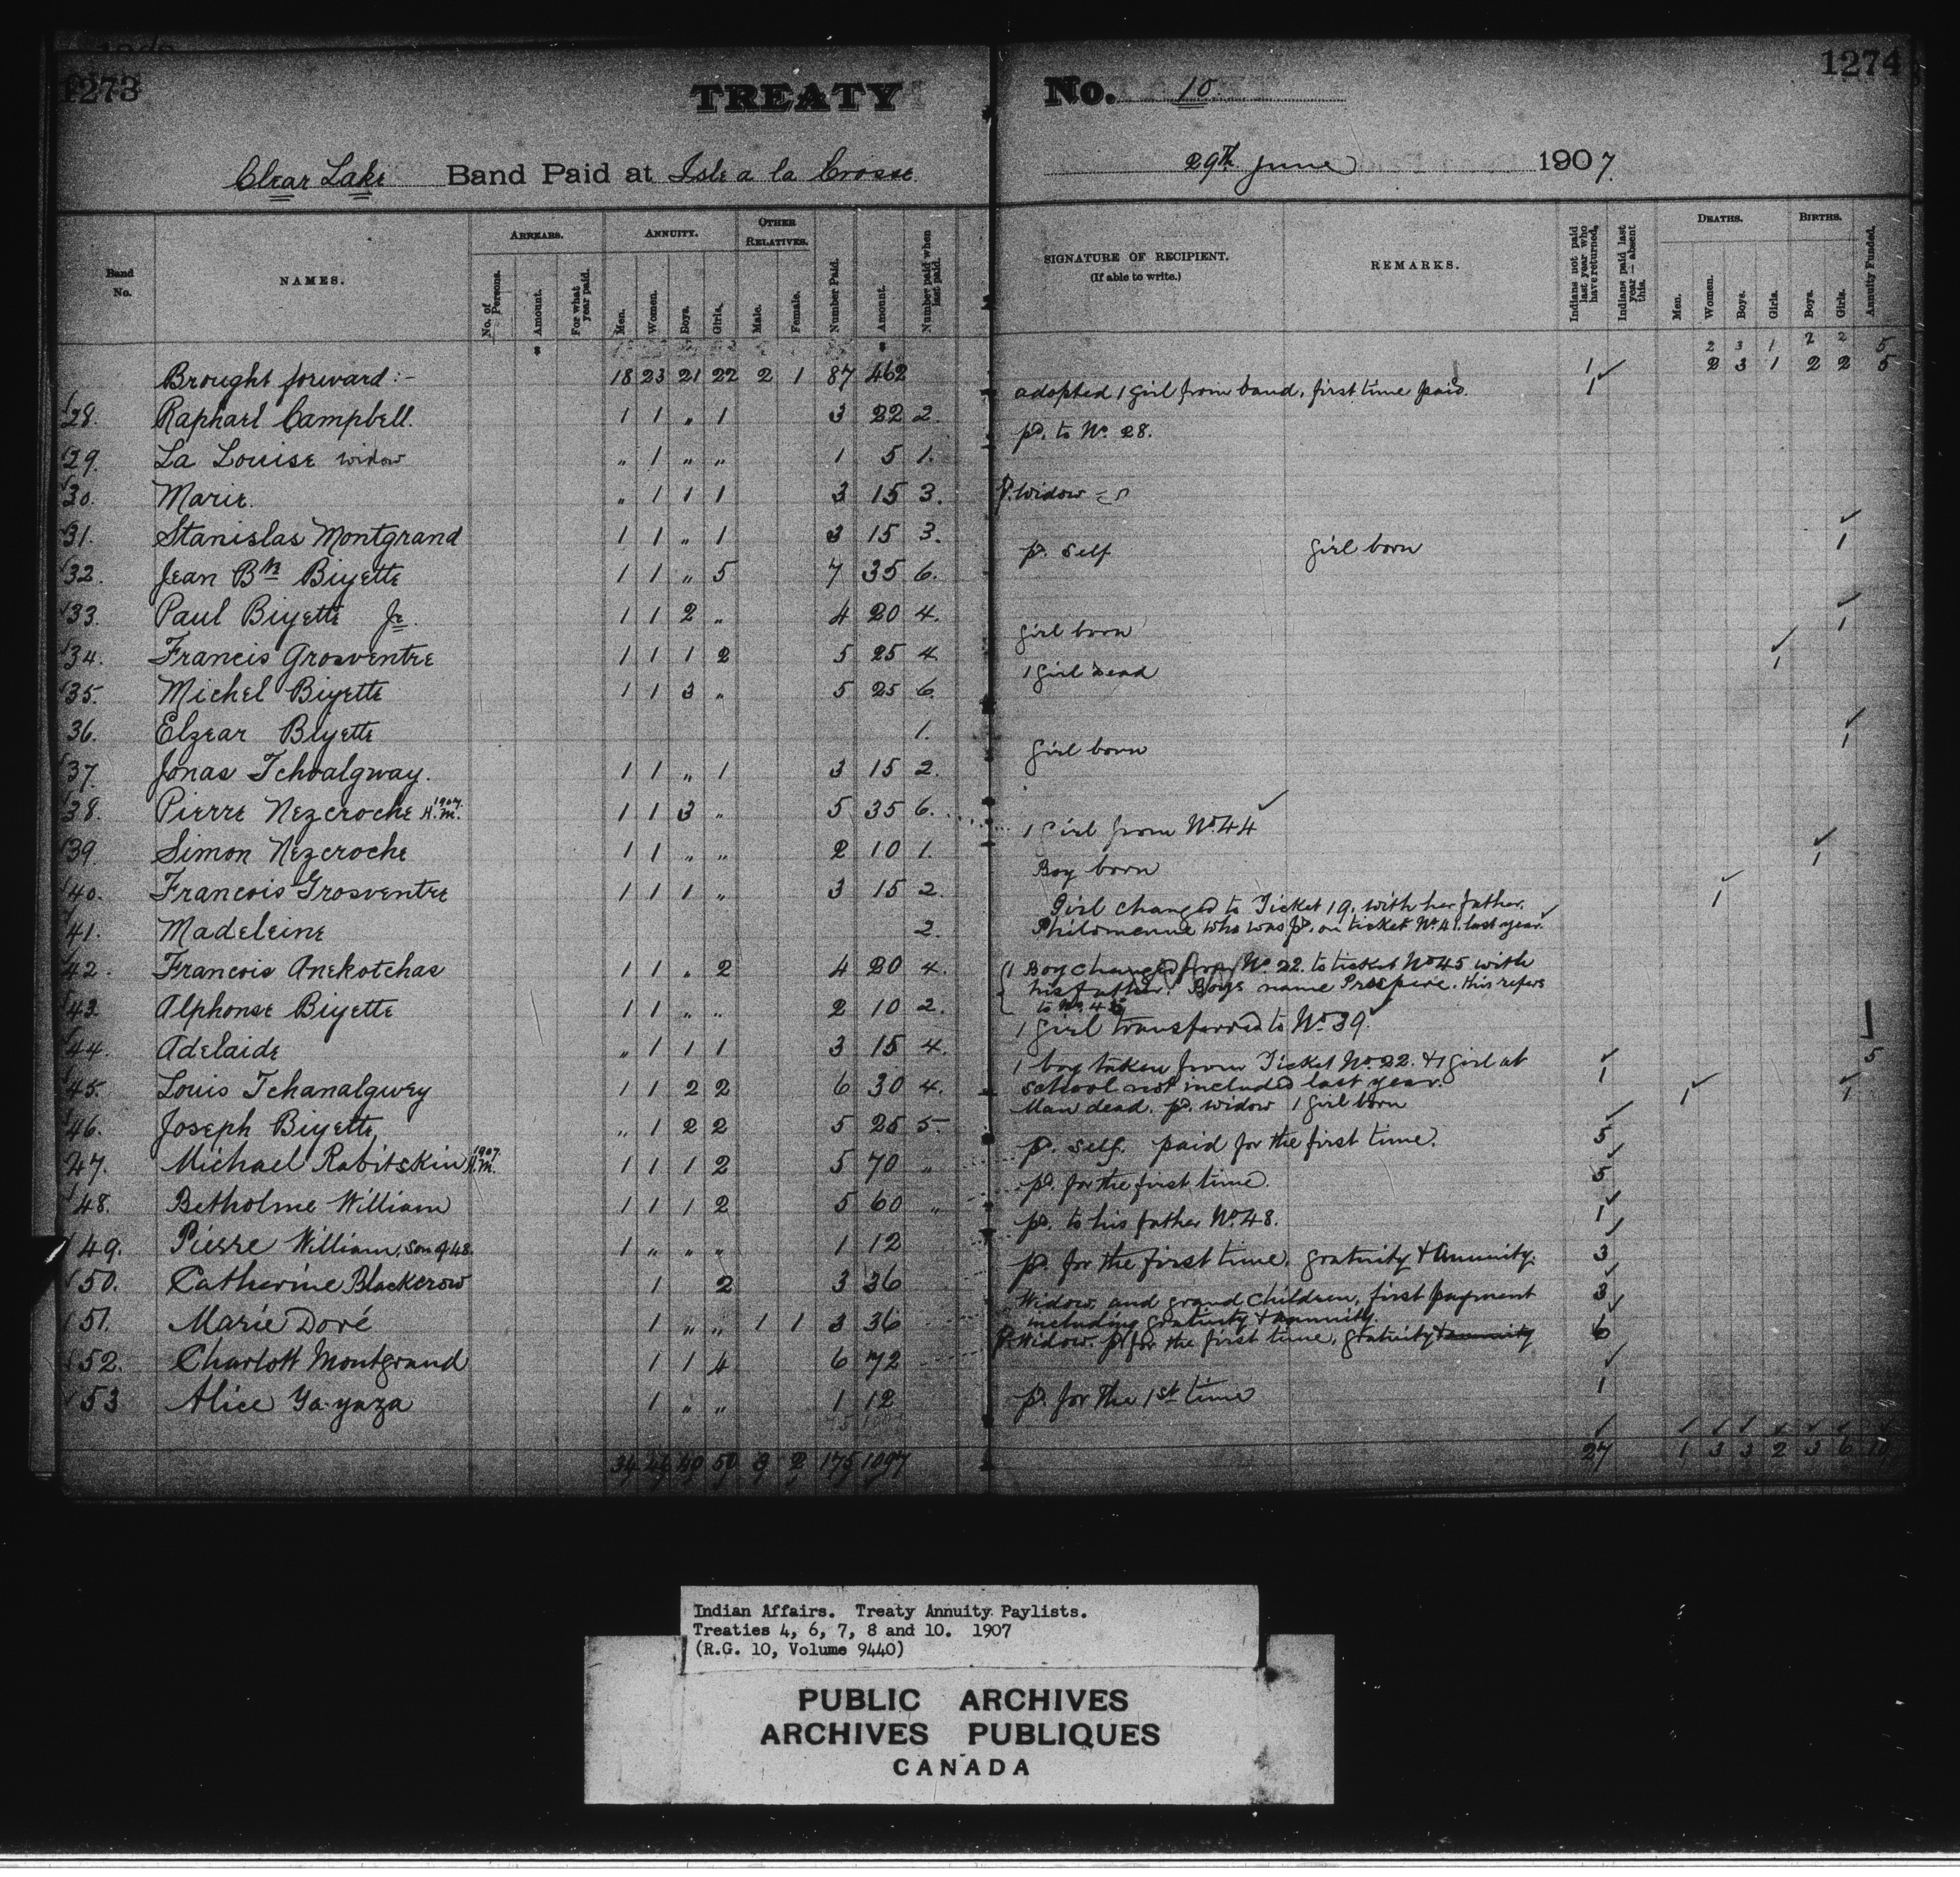 1273
1274
TREATY No. 10
Clear Lake Band Paid at Isle a la Crosse 29th June 1907.
Band No. NAMES. ARREARS. No. of Persons. Amount. For what year paid. ANNUITY. Men. Women. Boys. Girls. OTHER RELATIVES. Male. Female. Number Paid. Amount. Number paid when last paid.
SIGNATURE OF RECIPIENT. (If able to write.) REMARKS. Indians not paid last year who have returned. Indians paid last year—absent this. DEATHS. Men. Women. Boys. Girls. BIRTHS. Boys. Girls. Annuity Funded.
2 3 1 2 2 5
Brought forward:- 18 23 21 22 2 1 87 462 1 2 3 1 2 2 5
28. Raphael Campbell. 1 1 „ 1 3 22 2. adopted 1 girl from band, first time paid. 1
29. La Louise widow „ 1 „ „ 1 5 1. pd. to No. 28.
30. Marie. „ 1 1 1 3 15 3. p. Widow
31. Stanislas Montgrand 1 1 „ 1 3 15 3.
32. Jean Bte Biyette 1 1 „ 5 7 35 6. p. self girl born 1
33. Paul Biyette Jr. 1 1 2 „ 4 20 4.
34. Francis Grosventre 1 1 1 2 5 25 4 girl born 1
35. Michel Biyette 1 1 3 „ 5 25 6. 1 girl dead 1
36. Elzear Biyette 1.
37. Jonas Tchoalgway. 1 1 „ 1 3 15 2. girl born 1
38. Pierre Nezcroche 1907. H.M. 1 1 3 „ 5 35 6.
39 Simon Nezcroche 1 1 „ „ 2 10 1. 1 Girl from No. 44
40. Francois Grosventre 1 1 1 „ 3 15 2. Boy born 1
41. Madeleine 2. Girl changed to Ticket 19, with her father. 1
Philomenne who was pd. on ticket No. 41. last year.
42. Francois Anekotchas 1 1 „ 2 4 20 4. 1 Boy changed from No. 22. to ticket No 45 with
his father. Boys name Prospere. this refers
to No. 45
43 Alphonse Biyette 1 1 „ „ 2 10 2.
44. Adelaide „ 1 1 1 3 15 4. 1 girl transferred to No. 39
45. Louis Tchanalgwey 1 1 2 2 6 30 4. 1 boy taken from Ticket No. 22. & 1 girl at
school not included last year. 1 5
46. Joseph Biyette „ 1 2 2 5 25 5. Man dead. pd. widow 1 girl born 1 1
47. Michael Rabitskin 1907. H.M. 1 1 1 2 5 70 „ p. self. paid for the first time. 5
48. Betholme William 1 1 1 2 5 60 „ pd. for the first time. 5
49. Pierre William, son of 48. 1 „ „ „ 1 12 pd. to his father No. 48. 1
50. Catherine Blackcrow 1 2 3 36 p. for the first time, gratuity & annuity. 3
51. Marie Doré 1 „ „ 1 1 3 36 Widow, and grand children, first payment
including gratuity & annuity. 3
52. Charlott Montgrand 1 1 4 6 72 p. Widow. p. for the first time, gratuity & annuity 6
53 Alice Ya-yaza 1 „ „ 1 12 p. for the 1st time 1
34 46 40 50 3 2 175 1097 27 1 3 3 2 3 6 10
Indian Affairs. Treaty Annuity Paylists.
Treaties 4, 6, 7, 8 and 10. 1907
(R.G. 10, Volume 9440)
PUBLIC ARCHIVES
ARCHIVES PUBLIQUES
CANADA